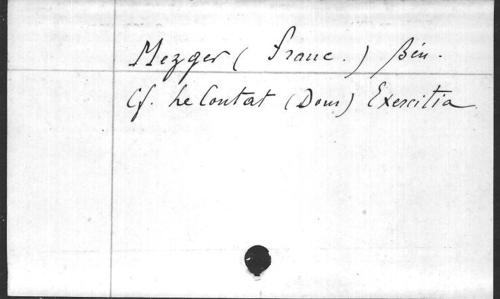 Mezger ( Franc. ) Bén.
Cf. Le Contat (Dom) Exercitia